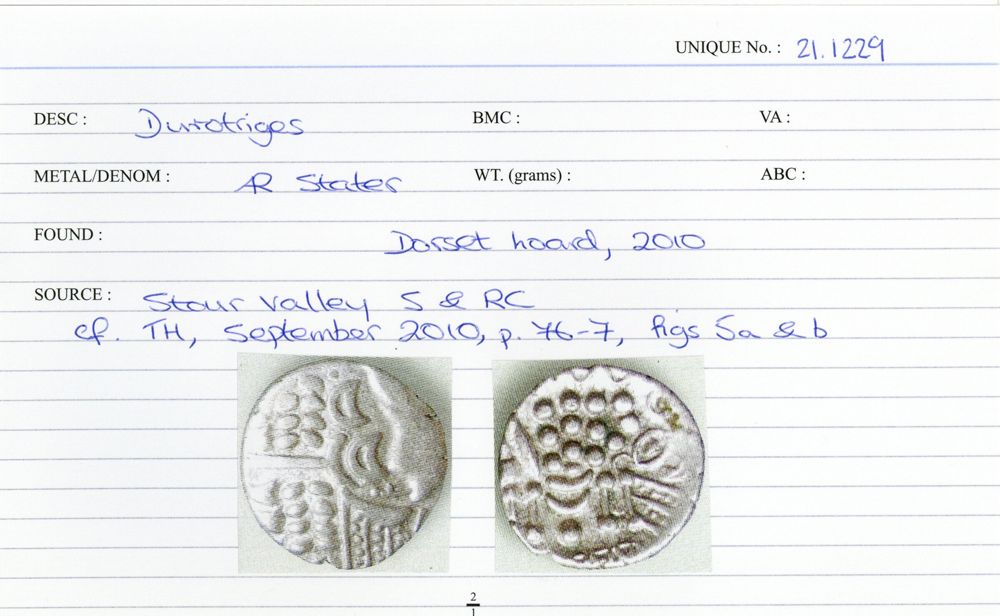 UNIQUE No. : 21.1229
DESC : Durotriges BMC : VA :
METAL/DENOM : AR Stater WT. (grams) : ABC :
FOUND : Dorset hoard, 2010
SOURCE : Stour Valley S & RC
cf. TH, September 2010, p. 76-7, figs 5a & b
2
1